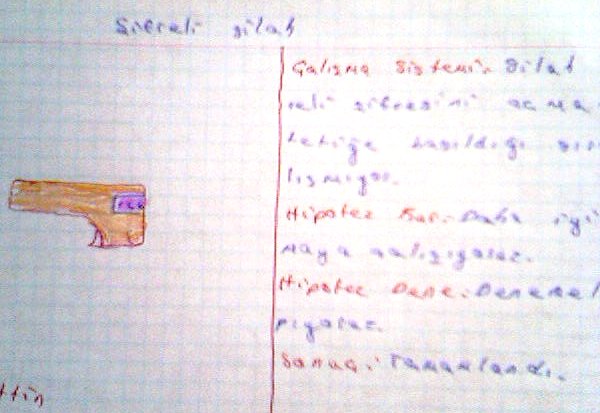 Şifreli silah
Çalışma Sistemi: Silah
reli şifresini açma
tetiğe basıldığı
lışmıyor.
Hipotez Kur: Daha iyi
maya çalışıyoruz.
Hipotez Dene: Deneme
pıyoruz.
Sonuç: Tamamlandı.
ttin